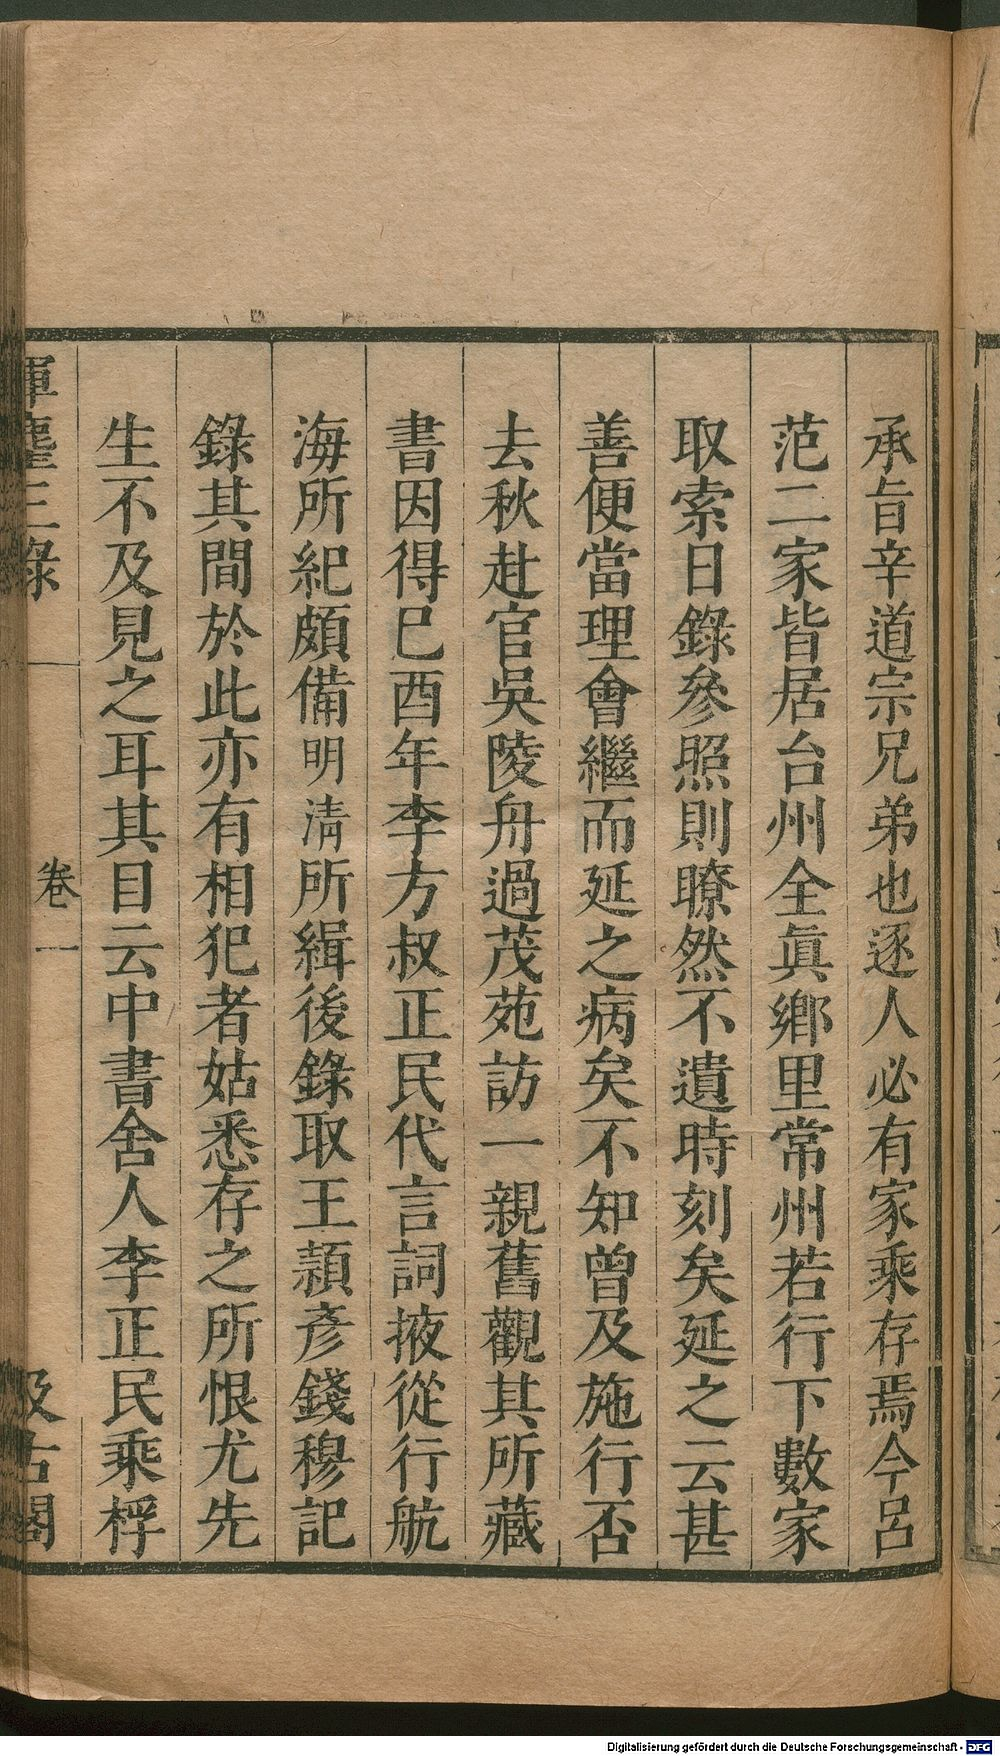 承旨辛道宗兄弟也逐人必有家乘存焉今呂
范二家皆居台州全眞鄉里常州若行下數家
取索日錄參照則瞭然不遺時刻矣延之云甚
善便當理會繼而延之病矣不知曾及施行否
去秋赴官吳陵舟過茂苑訪一親舊觀其所藏
書因得巳酉年李方叔正民代言詞掖從行航
海所紀頗備明清所緝後錄取王頴彥錢穆記
錄其間於此亦有相犯者姑悉存之所恨尤先
生不及見之耳其目云中書舍人李正民乘桴
揮麈三錄
卷一
汲古閣
Digitalisierung gefördert durch die Deutsche Forschungsgemeinschaft - DFG